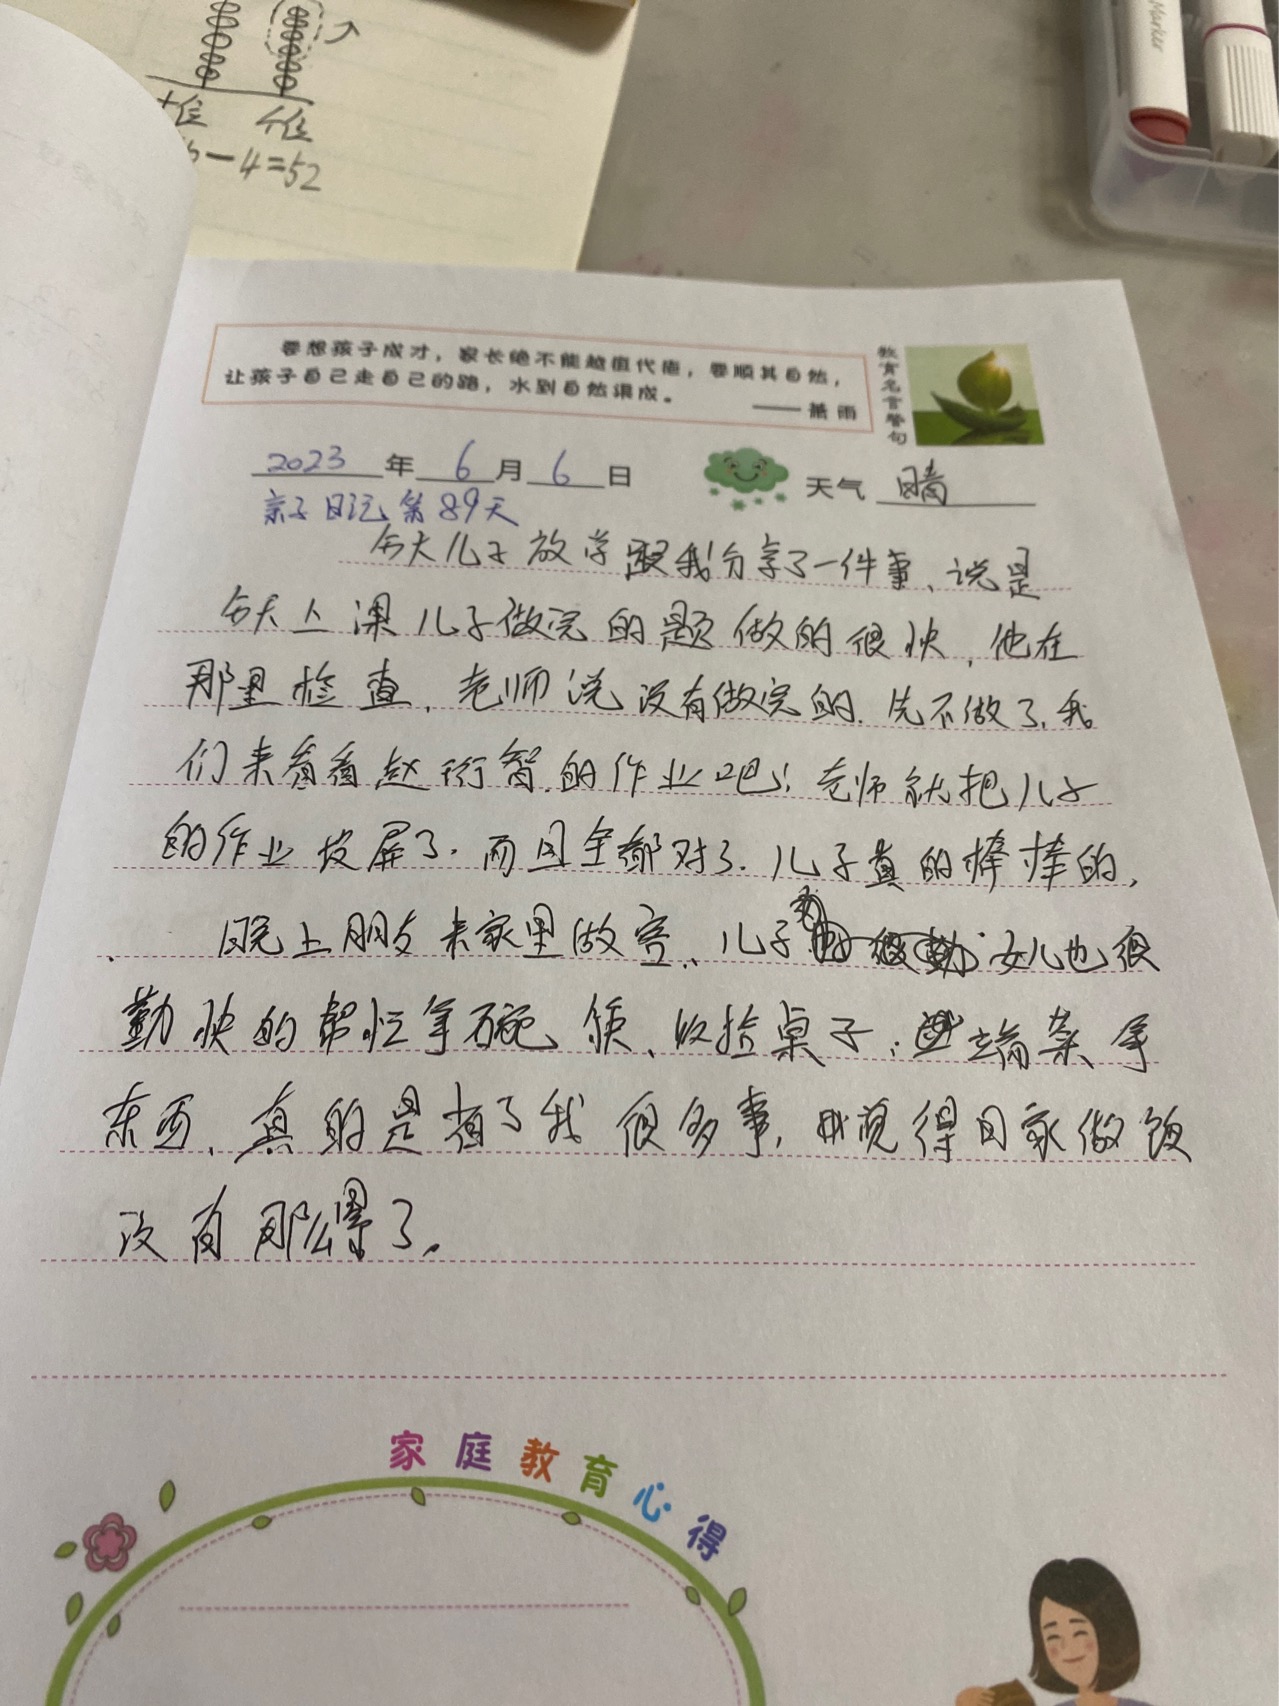 Marker
十位 个位
6-4=52
要想孩子成才，家长绝不能越俎代庖，要顺其自然，
让孩子自己走自己的路，水到自然渠成。
——燕雨
教育名言警句
2023年6月6日 天气 晴
亲子日记第89天
今天儿子放学跟我分享了一件事、说是
今天上课儿子做完的题做的很快，他在
那里检查，老师说没有做完的.先不做了.我
们来看看赵珩智的作业吧！老师就把儿子
的作业投屏了.而且全都对了.儿子真的棒棒的，
晚上朋友来家里做客、儿子 女儿也很
勤快的帮忙拿碗、筷、收捡桌子；端菜拿
东西、真的是省了我很多事，我觉得回家做饭
没有那么累了.
家庭教育心得